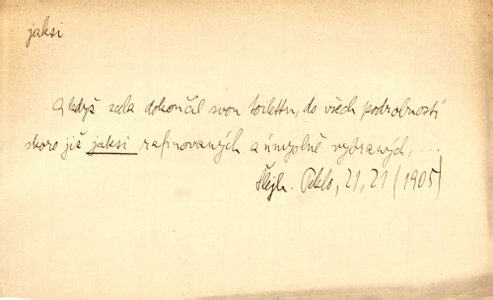 jaksi
A když zcela dokončil svou toilettu, do všech podrobností
skoro již jaksi rafinovaných a úmyslně vybraných, ...
Šlejh. Peklo, 21, 21 (1905)